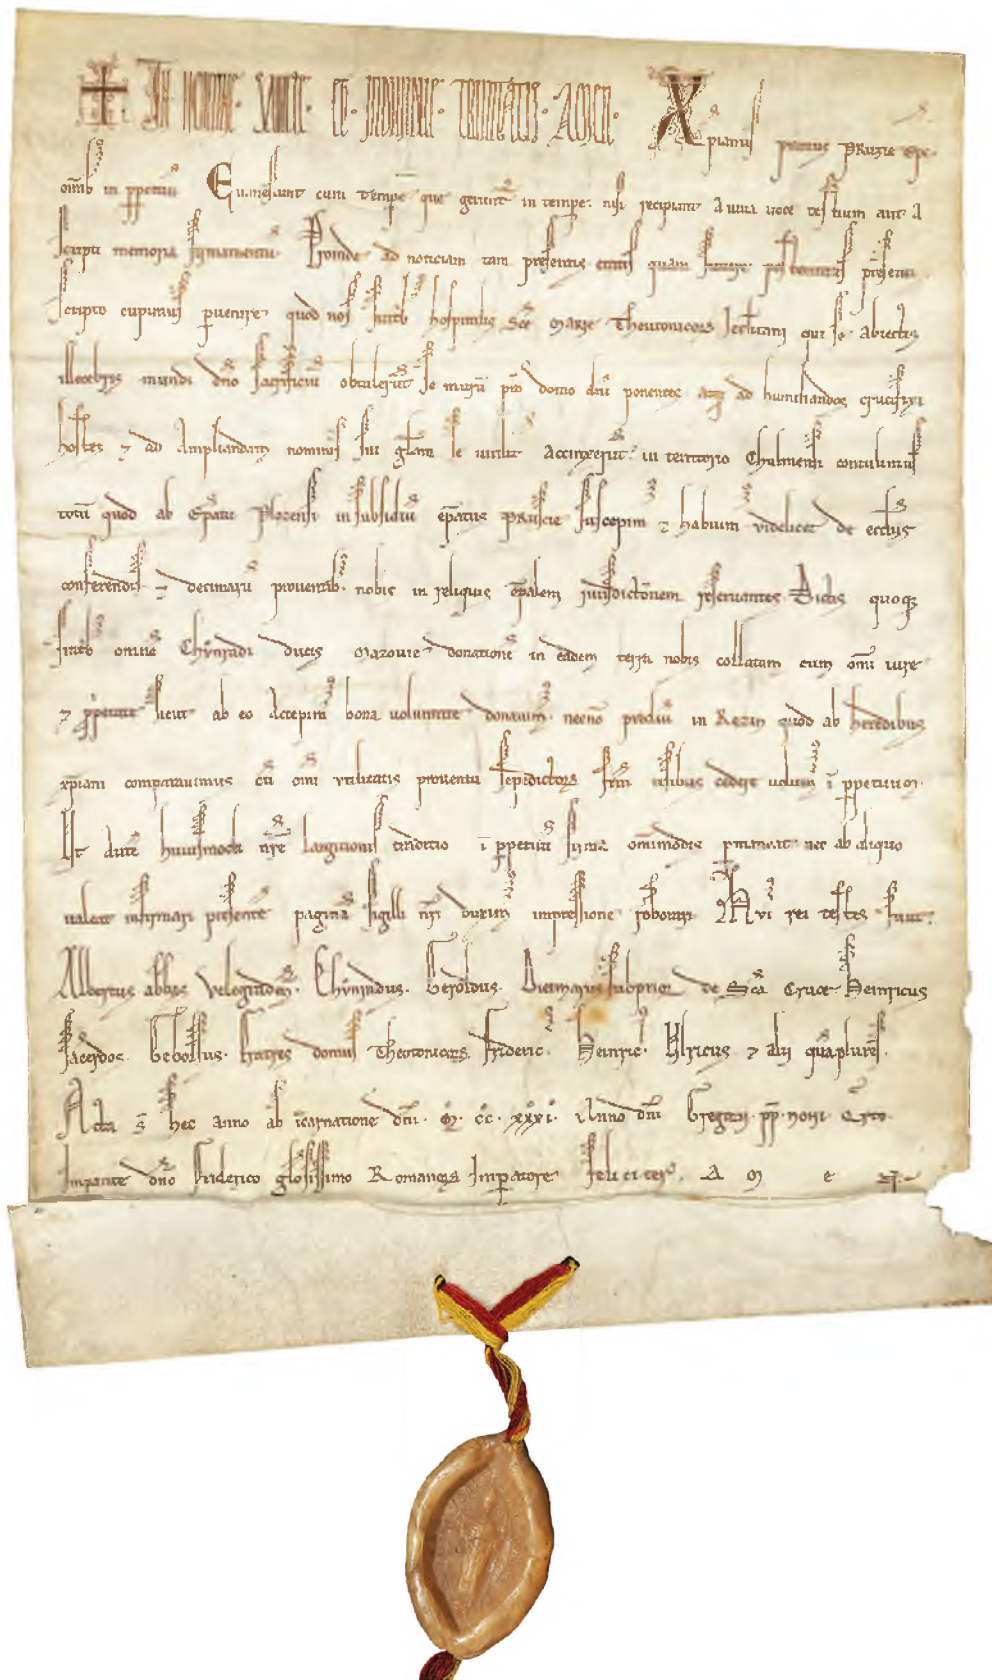 IN NOMINE SANCTE ET INDIVIDUE TRINITATIS AMEN. Xp̄ianus primus Pruzie ep̄c.
om̄ib in ꝑpetuū Euanescunt cum tempe que geruntr in tempe. nisi recipiant a uiua uoce testium aut a
scripti memoria firmamentū. Proinde ad noticiam tam presentis etatis quam future posteritatis presenti
scripto cupimus ꝑuenire quod nos fratrib hospitalis Sce Marie Theutonicoꝝ Ierlimitani qui se abiectis
illecebris mundi dn̄o sacrificiū obtulerūt se murū pro domo dn̄i ponentes atqꝫ ad humiliandos crucifixi
hostes ⁊ ad ampliandam nominis sui gl̄iam se uirilit accinxerūt in territorio Chulmensi contulimus
totū quod ab ep̄atu Plozensi in subsidiū ep̄atus Pruscie suscepim ⁊ habuim videlicet de eccl̄iis
conferendis ⁊ decimarū prouentib nobis in reliquis ep̄alem iurisdictōnem reseruantes. Dictis quoqꝫ
fratrib omnē Chvnradi ducis Mazouie donationē in eadem terra nobis collatam cum om̄i iure
⁊ ꝓprietate sicut ab eo accepim bona uoluntate donauim. necno prediū in Rezin quod ab heredibus
xp̄iani comparauimus cū om̄i vtilitatis prouentu sepedictoꝝ frm̄ usibus cedere uolum ī ꝑpetuum.
Ut autē huiusmodi nr̄e largitionis traditio ī ꝑpetuū firma om̄imodis ꝑmaneat nec ab aliquo
ualeat infirmari presentē paginā sigilli nr̄i duxim impressione roborari Hvi rei testes sunt.
Albertus abbas Velegradens. Chvnradus. Beroldus. Dietmarus subprior de Sca Cruce. Heinricus
sacerdos. Gebolfus. fratres domus Theotonicoꝝ Frideric. Heinric. Ulricus ⁊ alii quāplures.
Acta sūt hec anno ab īcarnatione dn̄i. M. CC. XXXI. Anno dn̄i Gregorii. pp. noni Qrto.
Impante dn̄o Friderico gl̄osissimo Romanoꝝ Imꝑatore feliciter. A M E N.